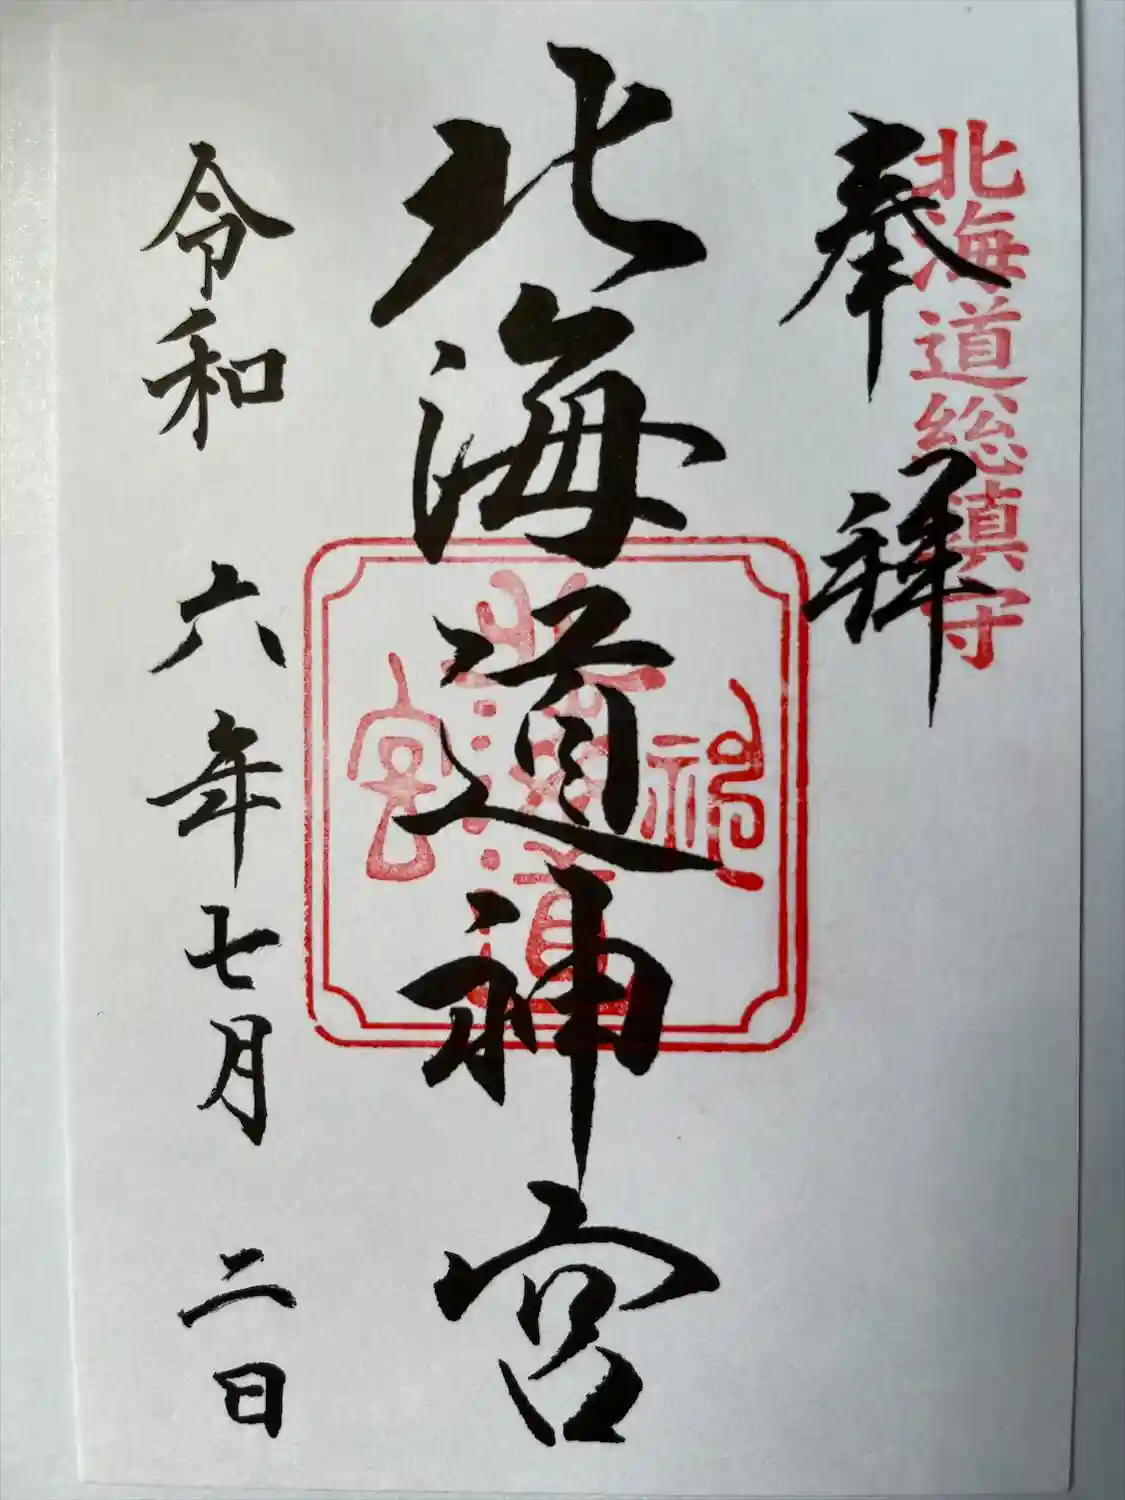 北海道総鎮守
奉拝
北海道神宮
北海道神宮
令和六年七月二日